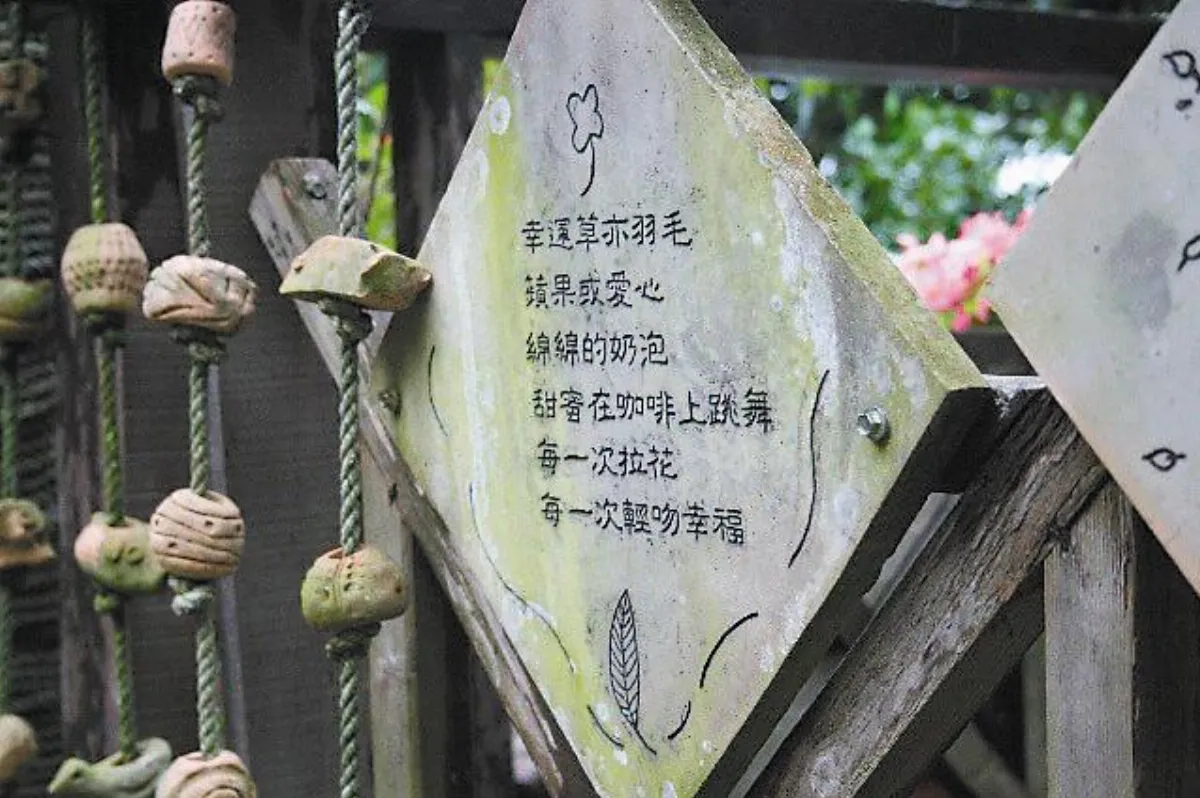 幸運草亦羽毛
蘋果或愛心
綿綿的奶泡
甜蜜在咖啡上跳舞
每一次拉花
每一次輕吻幸福